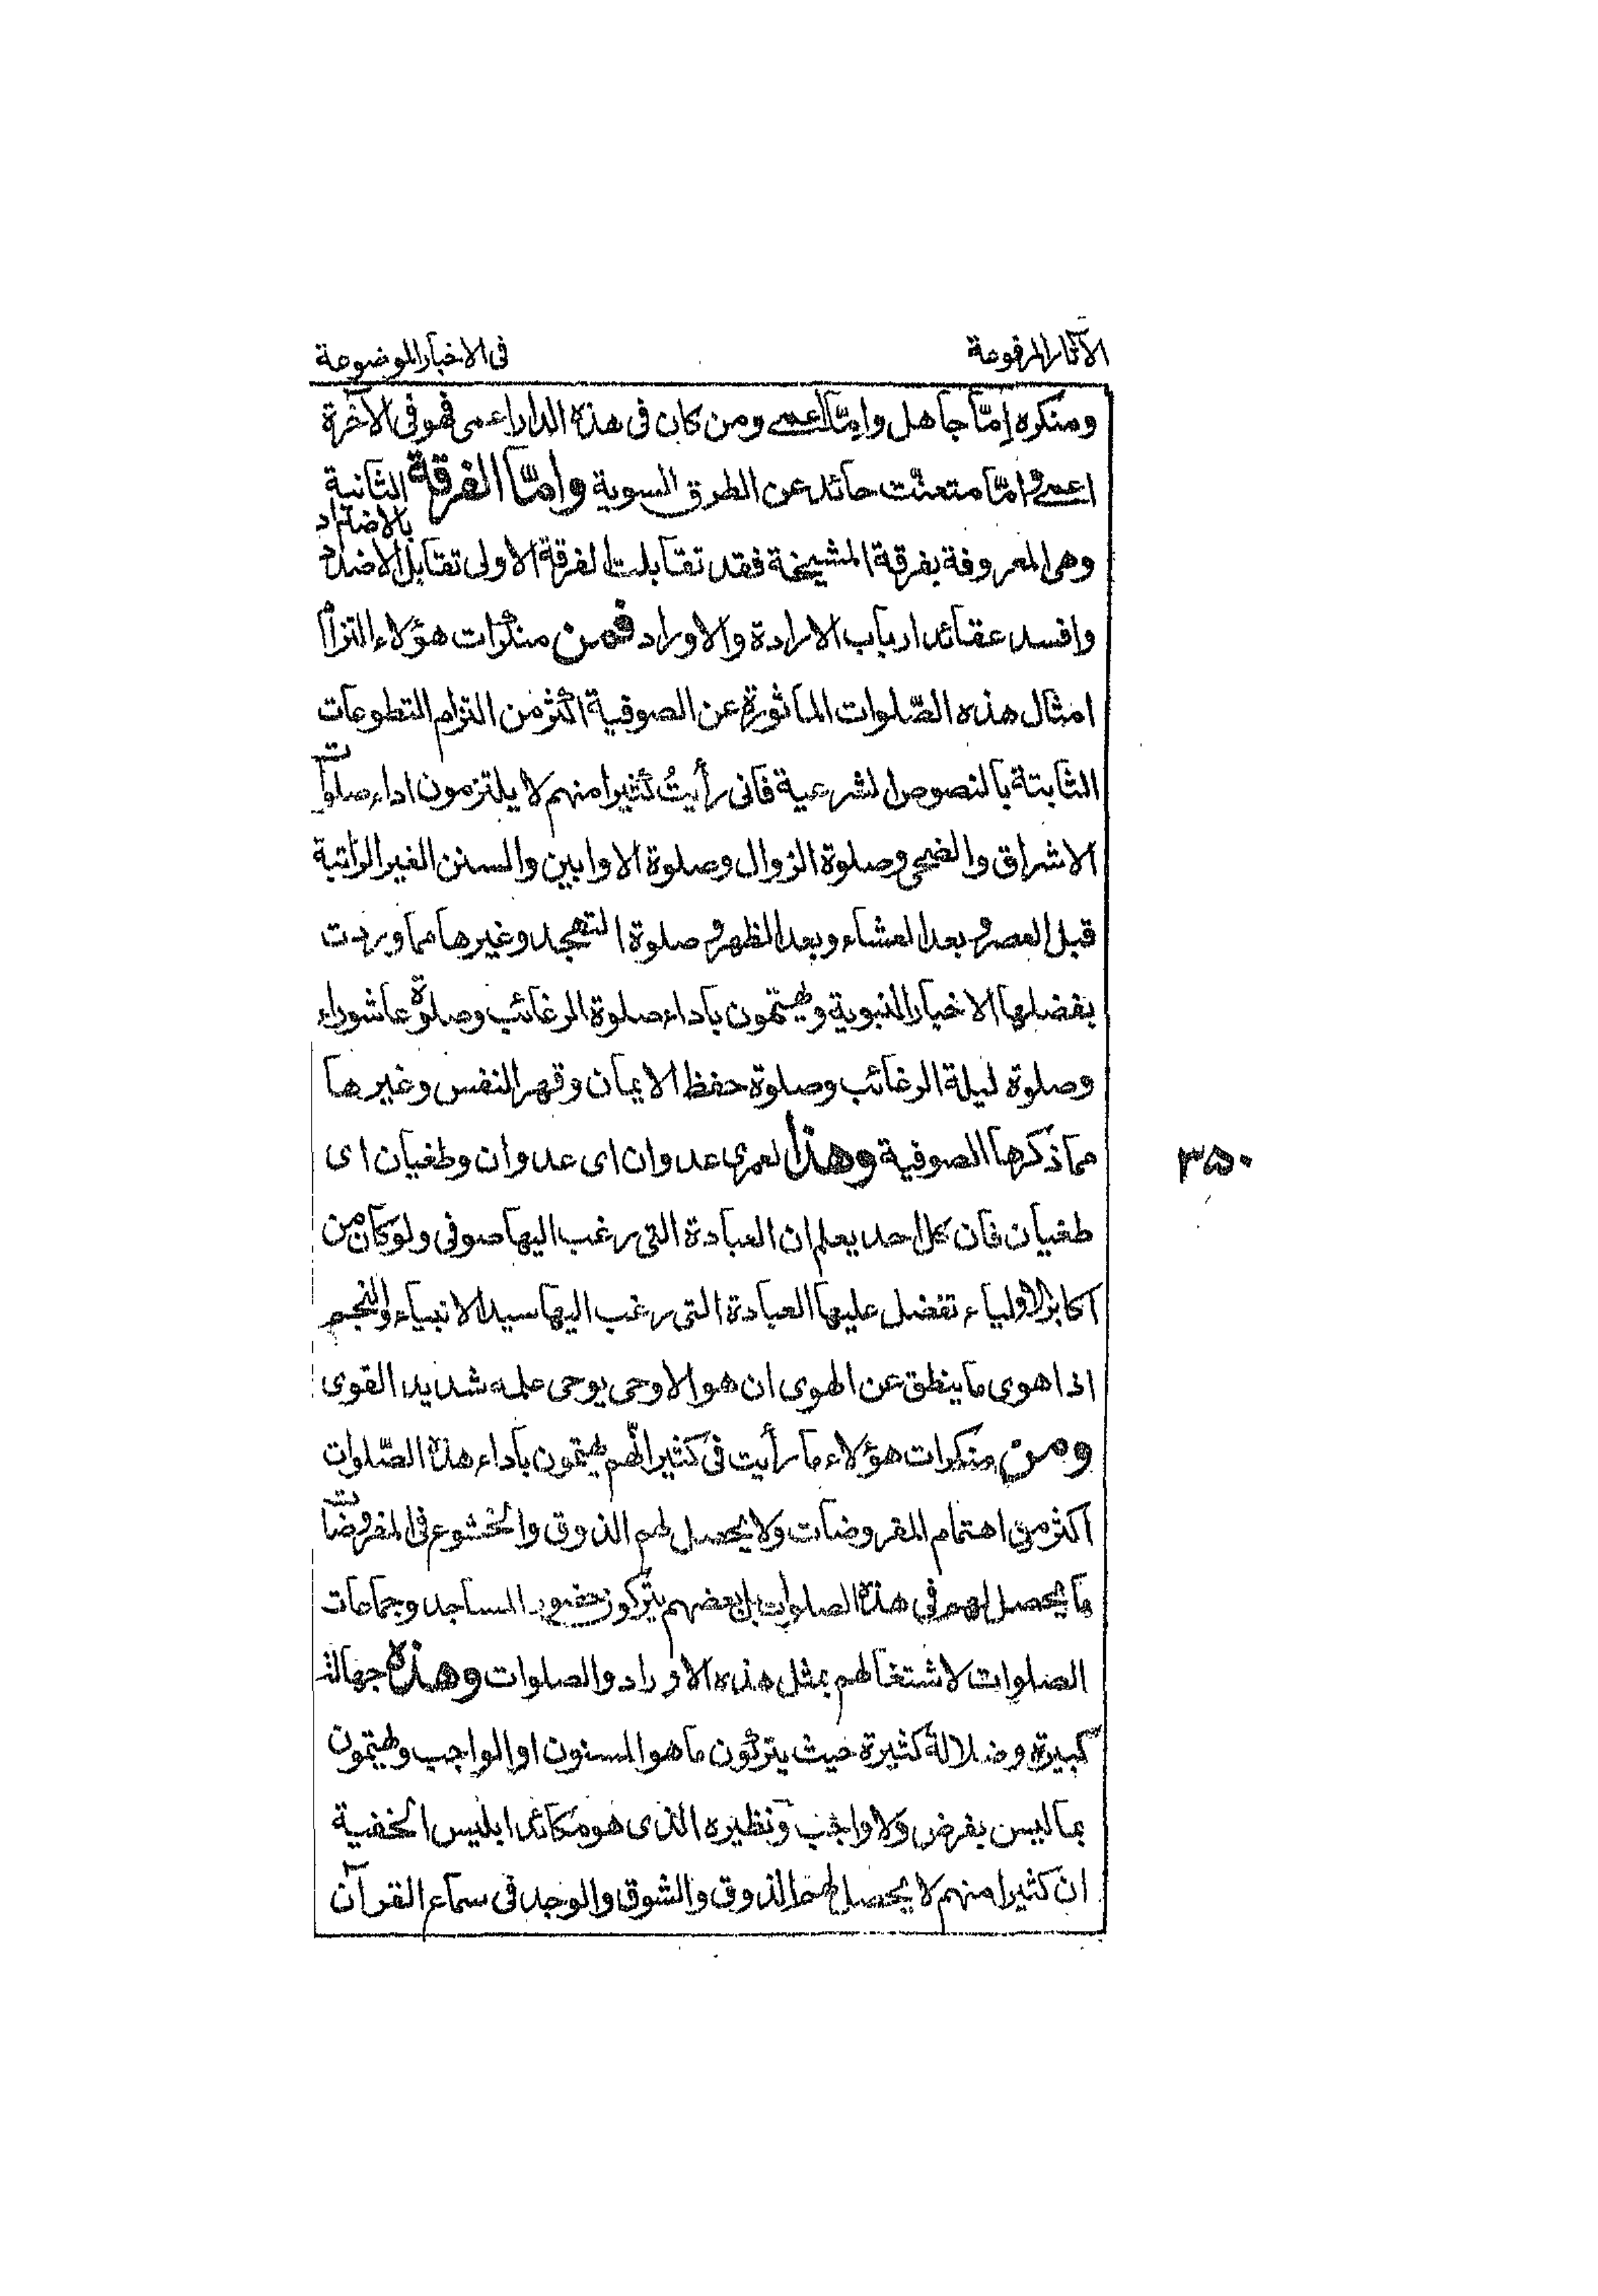 الآثار المرفوعة
فى الاخبار الموضوعة
ومنكره إمّا جاهل وامّا اعمى ومن كان فى هذه الدار اعمى فهو فى الآخرة
اعمى وامّا متعنت حائد عن الطرق السوية وامّا الفرقة الثانية
وهى المعروفة بفرقة المشيخة فقد تقابلت الفرقة الاولى تقابل الاضداد بالاضداد
وافسد عقائد ارباب الارادة والاوراد فمن منكرات هؤلاء التزام
امثال هذه الصّلوات المأثورة عن الصوفية اكثر من التزام التطوعات
الثابتة بالنصوص الشرعية فانى رأيتُ كثيرا منهم لا يلتزمون اداء صلوات
الاشراق والضحى وصلوة الزوال وصلوة الاوابين والسنن الغير الراتبة
قبل العصر وبعد العشاء وبعد الظهر وصلوة التهجد وغيرها مما وردت
بفضلها الاخبار النبوية ويهتمون باداء صلوة الرغائب وصلوة عاشوراء
وصلوة ليلة الرغائب وصلوة حفظ الايمان وقهر النفس وغيرها
مما ذكرها الصوفية وهذا لعمرى عدوان اى عدوان وطغيان اى
طغيان فان كل احد يعلم ان العبادة التى رغب اليها صوفى ولو كان من
اكابر الاولياء تفضل عليها العبادة التى رغب اليها سيد الانبياء والنجم
اذا هوى ما ينطق عن الهوى ان هو الا وحى يوحى علمه شديد القوى
ومن منكرات هؤلاء ما رأيت فى كثير انهم يهتمون باداء هذه الصّلوات
اكثر من اهتمام المفروضات ولا يحصل لهم الذوق والخشوع فى المفروضات
ما يحصل لهم فى هذه الصلوات بل بعضهم يتركون حضور المساجد وجماعات
الصلوات لاشتغالهم بمثل هذه الاوراد والصلوات وهذه جهالة
كبيرة وضلالة كثيرة حيث يتركون ما هو المسنون او الواجب ويهتمون
بما ليس بفرض ولا واجب ونظيره الذى هو مكائد ابليس الخفية
ان كثيرا منهم لا يحصل لهم الذوق والشوق والوجد فى سماع القرآن
۳۵۰